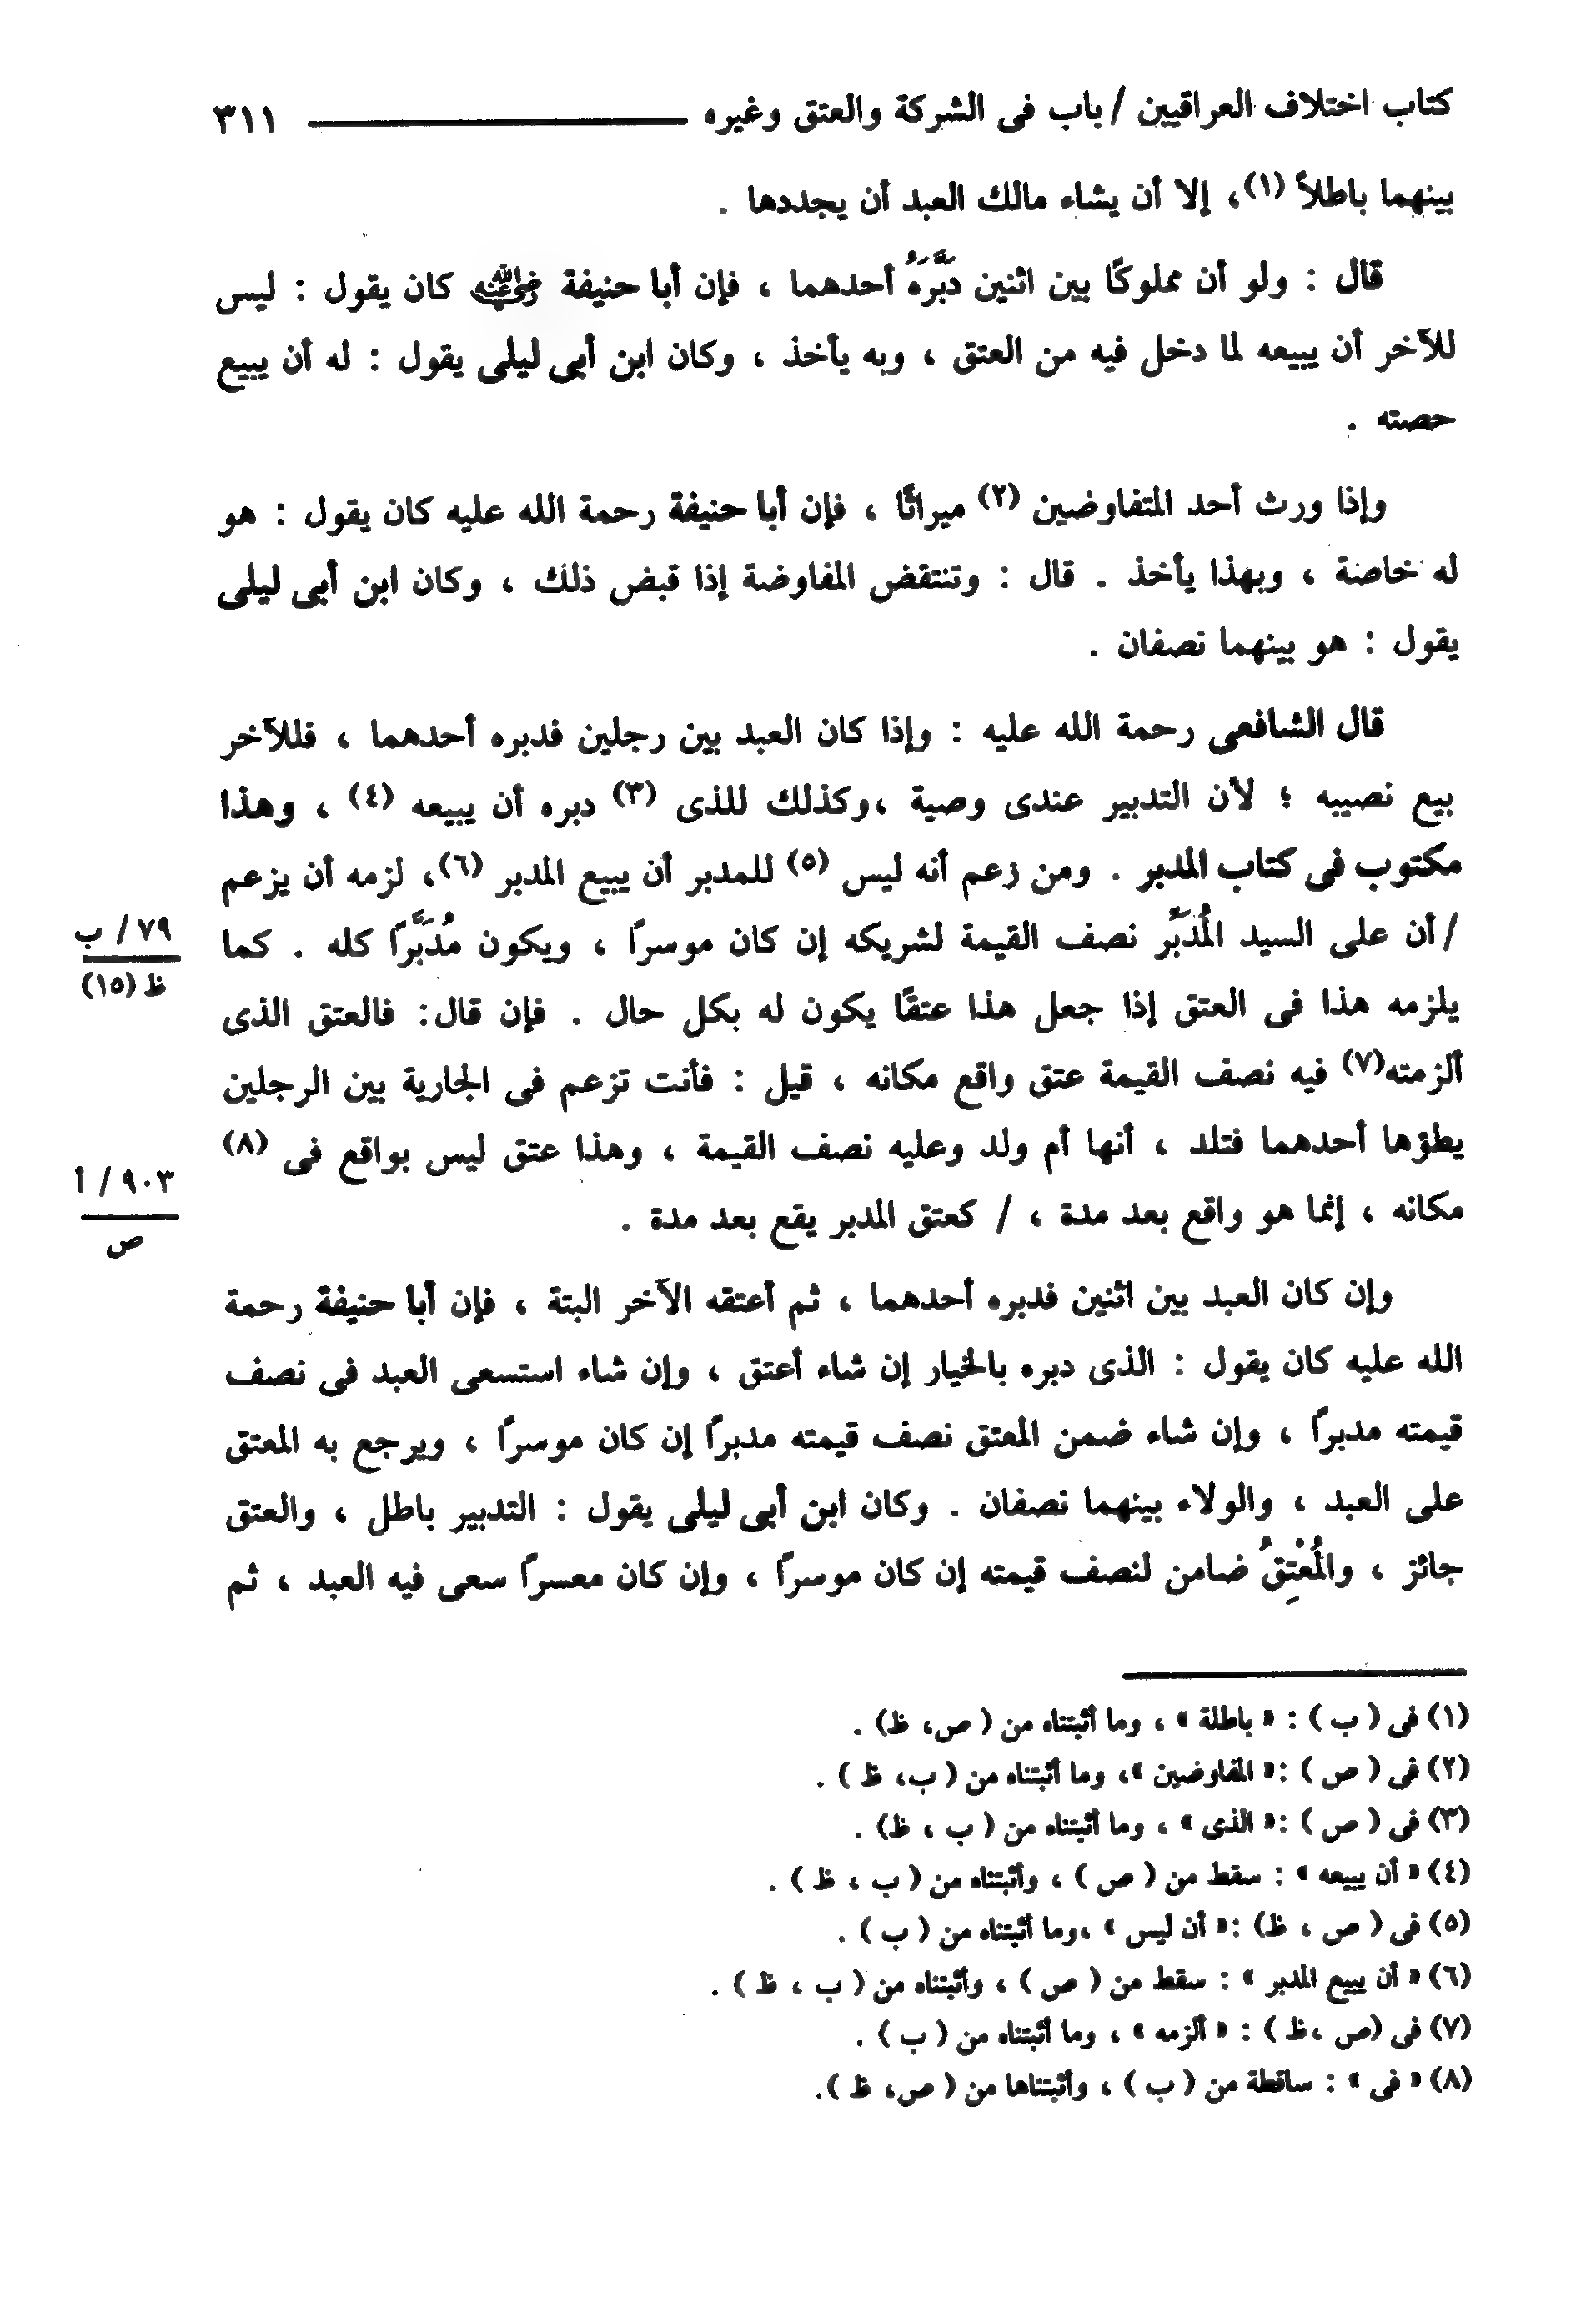 كتاب اختلاف العراقيين / باب فى الشركة والعتق وغيره ٣١١
بينهما باطلاً (١)، إلا أن يشاء مالك العبد أن يجددها .
قال : ولو أن مملوكًا بين اثنين دَبَّرَهُ أحدهما ، فإن أبا حنيفة رضي الله عنه كان يقول : ليس
للآخر أن يبيعه لما دخل فيه من العتق ، وبه يأخذ ، وكان ابن أبى ليلى يقول : له أن يبيع
حصته .
وإذا ورث أحد المتفاوضين (٢) ميراثًا ، فإن أبا حنيفة رحمة الله عليه كان يقول : هو
له خاصة ، وبهذا يأخذ . قال : وتنتقض المفاوضة إذا قبض ذلك ، وكان ابن أبى ليلى
يقول : هو بينهما نصفان .
قال الشافعى رحمة الله عليه : وإذا كان العبد بين رجلين فدبره أحدهما ، فللآخر
بيع نصيبه ؛ لأن التدبير عندى وصية ،وكذلك للذى (٣) دبره أن يبيعه (٤) ، وهذا
مكتوب فى كتاب المدبر . ومن زعم أنه ليس (٥) للمدبر أن يبيع المدبر (٦)، لزمه أن يزعم
/ أن على السيد المُدَبِّر نصف القيمة لشريكه إن كان موسرًا ، ويكون مُدَبَّرًا كله . كما
٧٩ / ب
ظ (١٥)
يلزمه هذا فى العتق إذا جعل هذا عتقًا يكون له بكل حال . فإن قال: فالعتق الذى
ألزمته(٧) فيه نصف القيمة عتق واقع مكانه ، قيل : فأنت تزعم فى الجارية بين الرجلين
يطؤها أحدهما فتلد ، أنها أم ولد وعليه نصف القيمة ، وهذا عتق ليس بواقع فى (٨)
٩٠٣ / أ
ص
مكانه ، إنما هو واقع بعد مدة ، / كعتق المدبر يقع بعد مدة .
وإن كان العبد بين اثنين فدبره أحدهما ، ثم أعتقه الآخر البتة ، فإن أبا حنيفة رحمة
الله عليه كان يقول : الذى دبره بالخيار إن شاء أعتق ، وإن شاء استسعى العبد فى نصف
قيمته مدبرًا ، وإن شاء ضمن المعتق نصف قيمته مدبرًا إن كان موسرًا ، ويرجع به المعتق
على العبد ، والولاء بينهما نصفان . وكان ابن أبى ليلى يقول : التدبير باطل ، والعتق
جائز ، والمُعْتِقُ ضامن لنصف قيمته إن كان موسرًا ، وإن كان معسرًا سعى فيه العبد ، ثم
(١) فى ( ب ) : « باطلة » ، وما أثبتناه من ( ص، ظ) .
(٢) فى ( ص ) :« المفاوضين »، وما أثبتناه من ( ب، ظ ) .
(٣) فى ( ص ) :« الذى » ، وما أثبتناه من ( ب ، ظ) .
(٤) « أن يبيعه » : سقط من ( ص ) ، وأثبتناه من ( ب ، ظ ) .
(٥) فى ( ص ، ظ) :« أن ليس » ،وما أثبتناه من ( ب ) .
(٦) « أن يبيع المدبر » : سقط من ( ص ) ، وأثبتناه من ( ب ، ظ ) .
(٧) فى (ص ،ظ ) : « ألزمه » ، وما أثبتناه من ( ب ) .
(٨) « فى » : ساقطة من ( ب ) ، وأثبتناها من ( ص، ظ ).